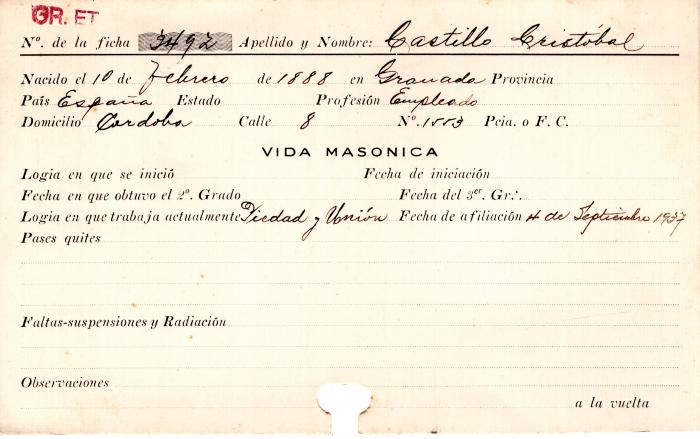 GR. ET
Nº. de la ficha 3492 Apellido y Nombre: Castillo Cristóbal
Nacido el 10 de Febrero de 1888 en Granada Provincia
País España Estado Profesión Empleado
Domicilio Cordoba Calle 8 Nº. 1553 Pcia. o F. C.
VIDA MASONICA
Logia en que se inició Fecha de iniciación
Fecha en que obtuvo el 2º. Grado Fecha del 3er. Gr∴
Logia en que trabaja actualmente Piedad y Unión Fecha de afiliación 4 de Septiembre 1937
Pases quites
Faltas-suspensiones y Radiación
Observaciones
a la vuelta